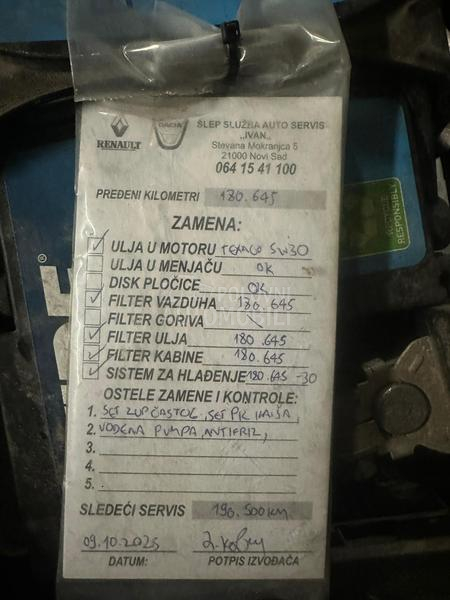 RENAULT
DACIA
ŠLEP SLUŽBA AUTO SERVIS
„IVAN"
Stevana Mokranjca 5
21000 Novi Sad
064 15 41 100
PREĐENI KILOMETRI 180.645
ZAMENA:
ULJA U MOTORU TEXACO 5W30
ULJA U MENJAČU OK
DISK PLOČICE OK
FILTER VAZDUHA 180.645
FILTER GORIVA
FILTER ULJA 180.645
FILTER KABINE 180.645
SISTEM ZA HLAĐENJE 180.645 -30
OSTELE ZAMENE I KONTROLE:
1. SET ZUPČASTOG, SET PK KAIŠA,
2. VODENA PUMPA, ANTIFRIZ,
3.
4.
5.
SLEDEĆI SERVIS 190.500km
09.10.2025
DATUM: POTPIS IZVOĐAČA
RECYCLE
RESPONSIBLY